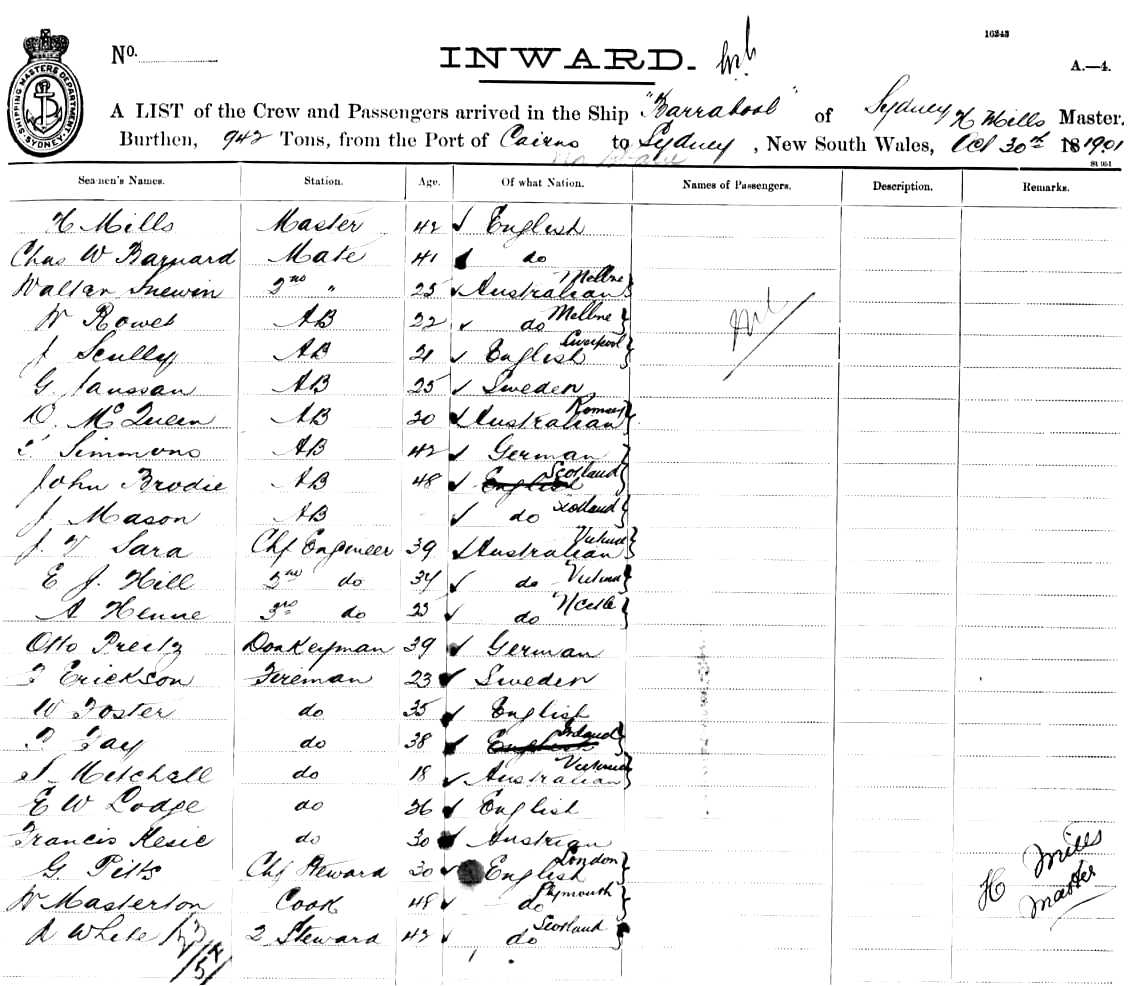 16343
No. INWARD.
A.—4.
SHIPPING MASTERS DEPARTMENT SYDNEY
A LIST of the Crew and Passengers arrived in the Ship "Barrabool" of Sydney H Mills Master.
Burthen, 942 Tons, from the Port of Cairns to Sydney, New South Wales, Oct 30th 181901
Seamen's Names. Station. Age. Of what Nation. Names of Passengers. Description. Remarks.
H Mills Master 42 English
Chas W Barnard Mate 41 do
Walter 2nd " 25 Australian Mellne
W Rowet AB 22 do Mellne
J Scully AB 21 English Liverpool
G Janssan AB 25 Sweden
D. McQueen AB 30 Australian Romsey
Simmons AB 42 German
John Brodie AB 48 English Scotland
J Mason AB do Scotland
J. T Sara Chf Engineer 39 Australian Victoria
E J. Hill 2nd do 34 do Victoria
A Henne 3rd do 23 do N'Castle
Otto Preitz Donkeyman 39 German
Erickson Fireman 23 Sweden
W Foster do 35 English
Fay do 38 English Ireland
Mitchell do 18 Australian Victoria
E W Lodge do 36 English
Francis Kesic do 30 Austrian
G. Pitts Chf Steward 30 English London
W Masterton Cook 48 do Plymouth
White 2 Steward 42 do Scotland
Nil
H Mills
Master